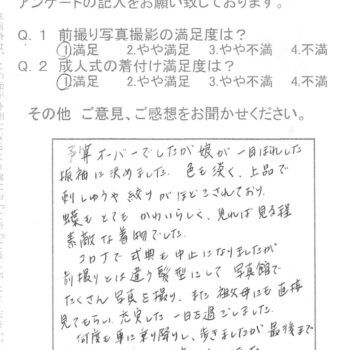 アンケートの記入をお願い致しております。
Q.1 前撮り写真撮影の満足度は?
①満足 2.やや満足 3.やや不満 4.不満
Q.2 成人式の着付け満足度は?
①満足 2.やや満足 3.やや不満 4.不満
その他 ご意見、ご感想をお聞かせください。
予算オーバーでしたが娘が一目ぼれした
振袖に決めました。色も淡く、上品で
刺しゅうや絞りがほどこされており、
蝶もとてもかわいらしく、見れば見る程
素敵な着物でした。
コロナで式典も中止になりましたが
前撮りとは違う髪型にして写真館で
たくさん写真を撮り、また祖父母にも直接
見てもらい、充実した一日を過ごしました。
何度も車に乗り降りし、歩きましたが最後まで